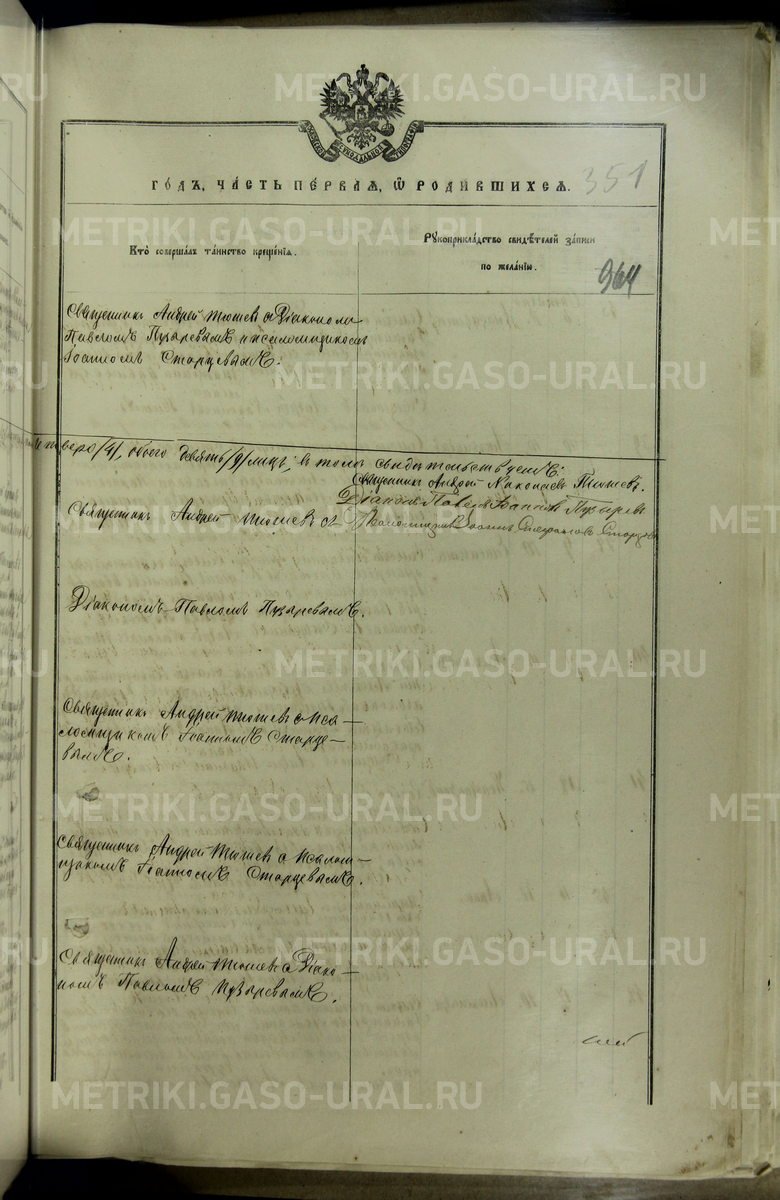 METRIKI.GASO-URAL.RU
СѴНОДАЛЬНОЙ
ГОДЪ, ЧАСТЬ ПЕРВАЯ, Ѿ РОДИВШИХСЯ. 351
Кто совершалъ таинство крещенія.
Рꙋкоприкладство свидѣтелей записи
по желанію.
964
Священникъ Андрей Тюшевъ съ Діакономъ
Павломъ Пузыревымъ и псаломщикомъ
Іоанномъ Старцевымъ.
четверо /4/, обоего девять /9/ лицъ; въ томъ свидѣтельствуемъ:
Священникъ Андрей Николаевъ Тюшевъ.
Діаконъ Павелъ Пузыревъ
Священникъ Андрей Тюшевъ съ
Псаломщикъ Іоаннъ Старцевъ
Діакономъ Павломъ Пузыревымъ.
Священникъ Андрей Тюшевъ съ Пса–
ломщикомъ Іоанномъ Старце–
вымъ.
Священникъ Андрей Тюшевъ съ Псалом–
щикомъ Іоанномъ Старцевымъ.
Священникъ Андрей Тюшевъ съ Діако–
номъ Павломъ Пузыревымъ.